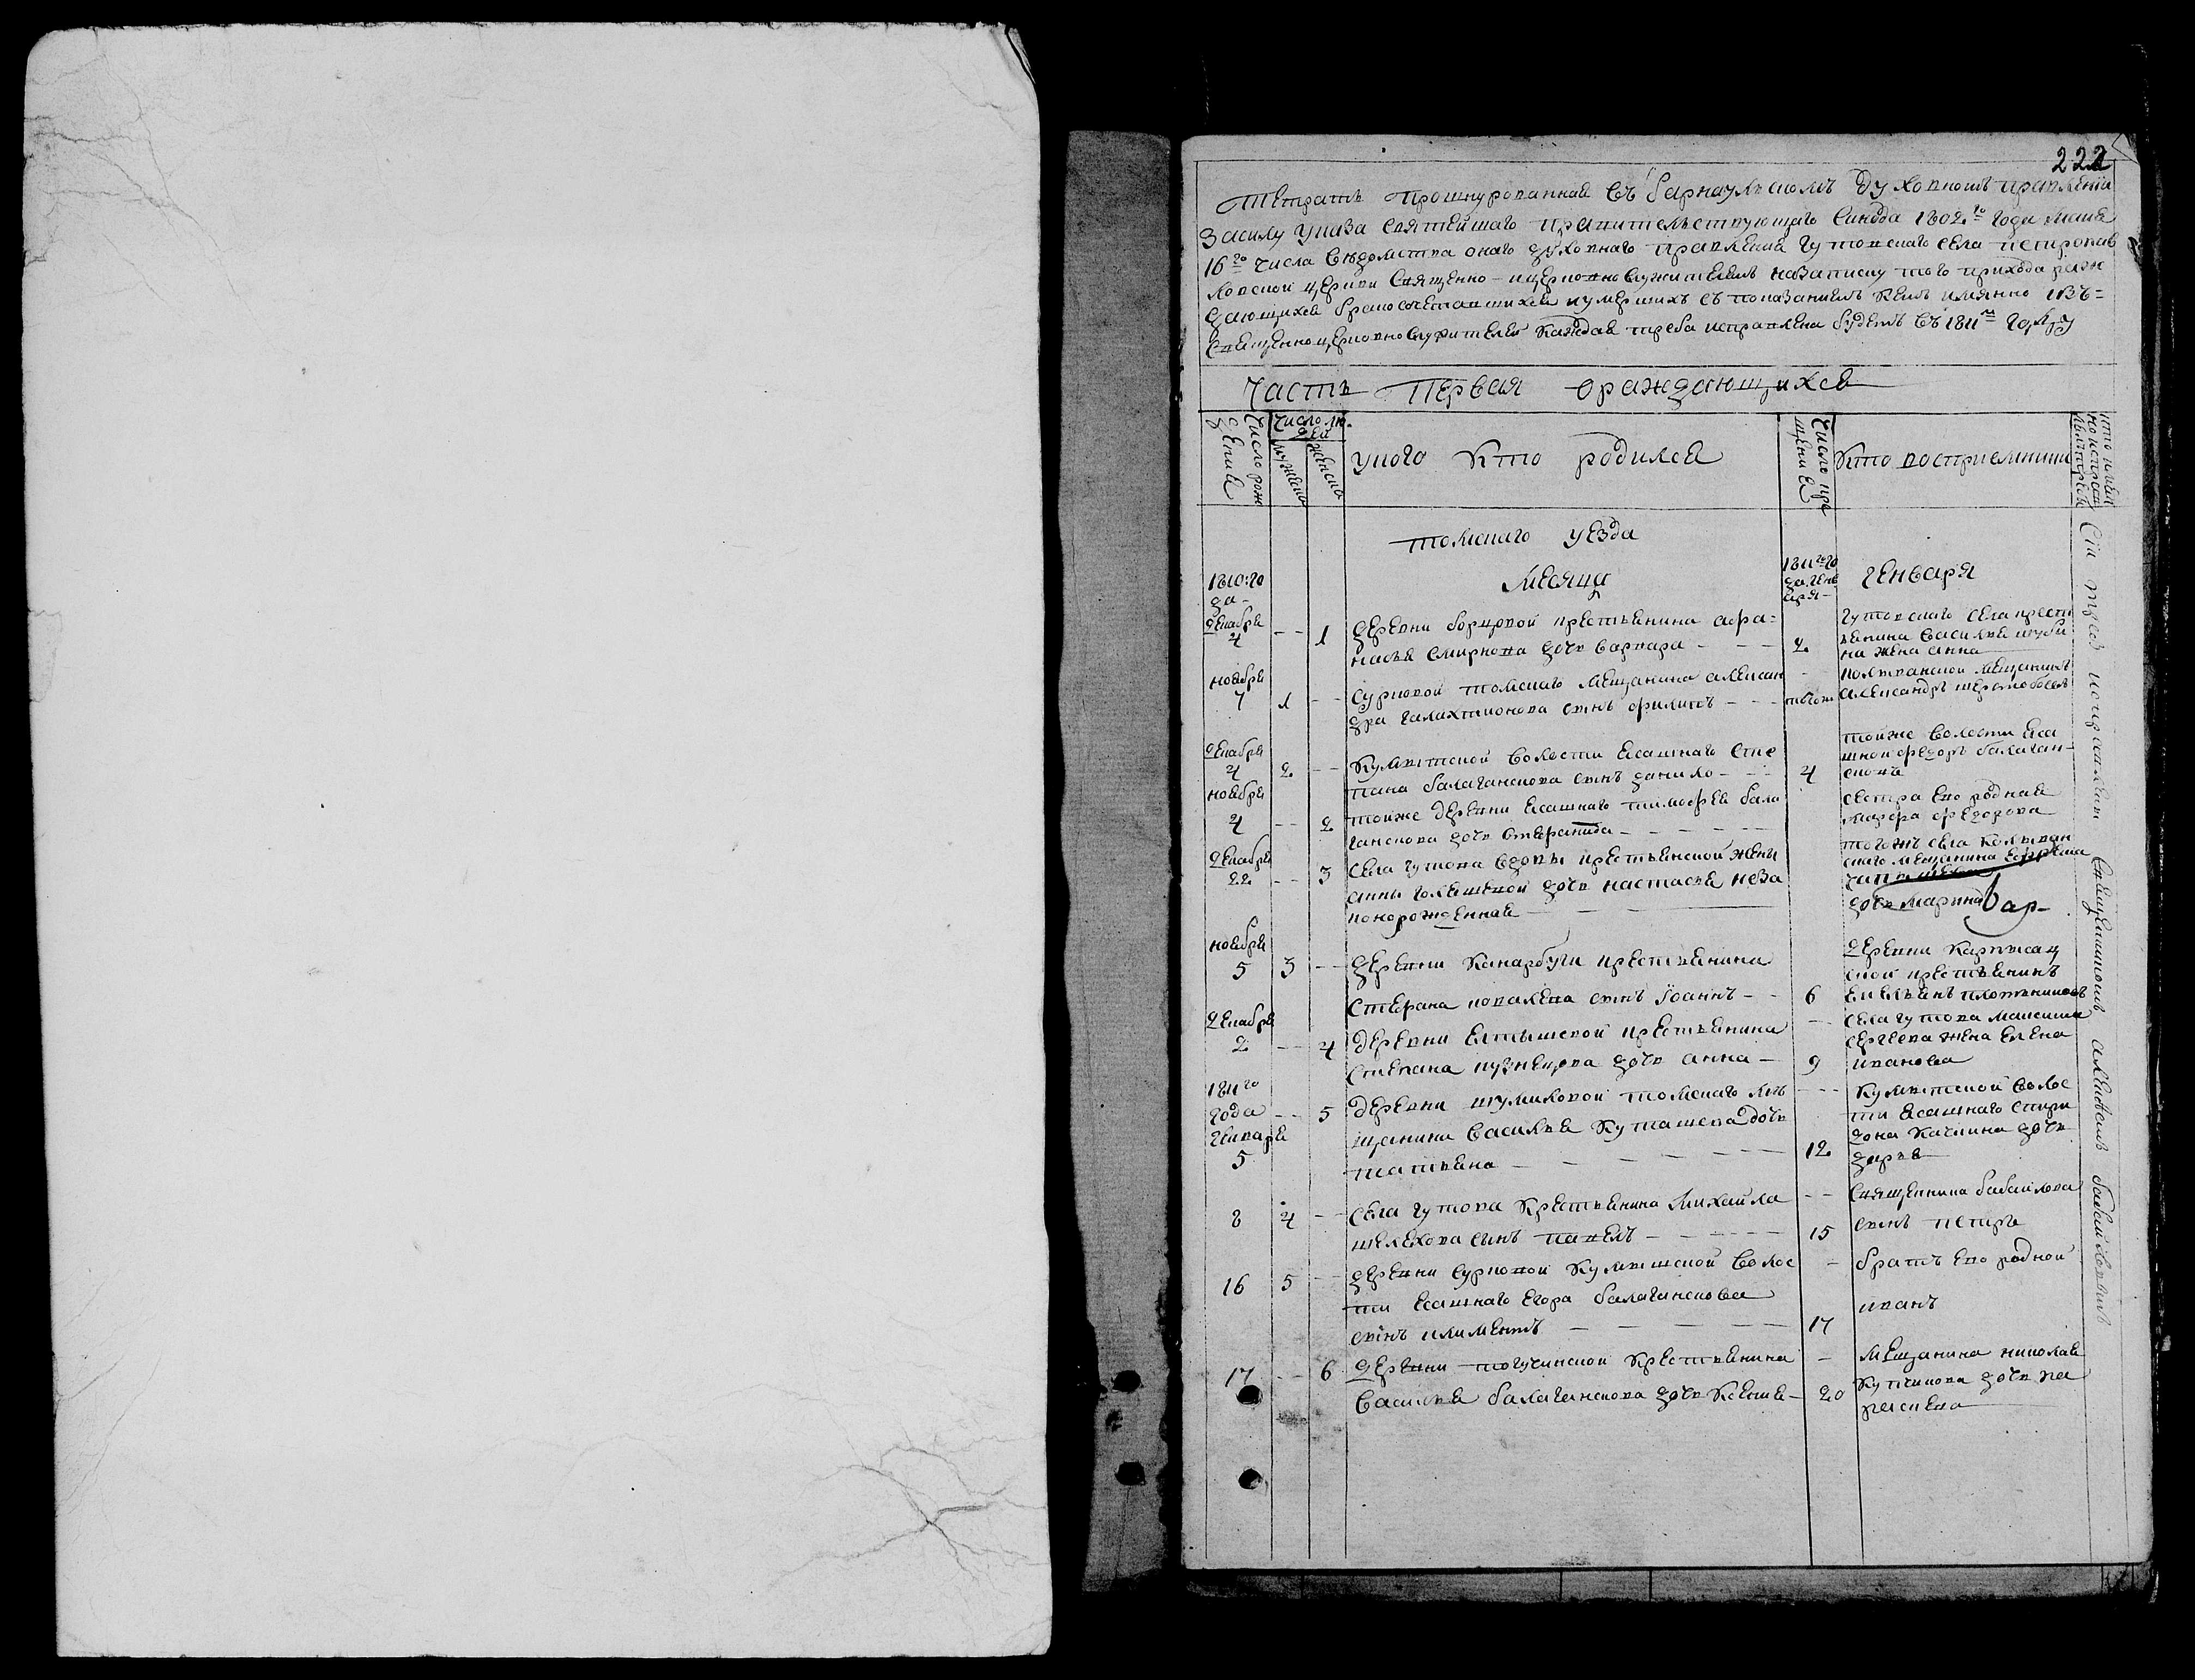 222
Тетрать прошнурованная въ барнаульскомъ духовномъ правленіи
Засилу указа святейшаго правительствующаго Синода 1802го года маия
16го числа ведомства онаго духовнаго правления гутовскаго села петропав
ловской церкви Священно-ицерковнослужителямъ назаписку того прихода раж
дающихся бракосочетавшихся иумершихъ съ показаниемъ кемъ имянно изъ=
Священноцерковнослужителей каждая треба исправлена будетъ въ 1811м году
Часть Первая ораждающихся
Число рож
дения
Число лю-
дей
мужеска
женска
укого Кто родился
Число кре
щения
Кто восприемники
кто имян
но исправ
лялъ требы
томскаго уезда
1810:го
да-
Месяца
1811го го
да ген
варя-
генваря
декабря
4 - - 1
деревни борцовой крестьянина афа=
насья Смирнова дочь варвара - - -
2
гутовскаго села крестъ
янина василья шуби
на жена анна
ноября
7 1 - -
Сурковой томскаго мещанина алексан
дра галахтионова сынъ филипъ - - -
тогожъ
колыванской мещанинъ
александръ шерстобоевъ
декабря
4 2 - -
Кумышской волости ясашнаго сте
пана балаганскова сынъ данило - - -
4
тоиже волости яса
шной федоръ балаган-
сковъ
ноября
4 - - 2
тоиже деревни ясашнаго тимофея бала
ганскова дочь стефанида - - - - -
сестра ево родная
мавра федорова
декабря
22 - - 3
села гутова вдовы крестьянской жены
анны голышевой дочь настасья неза
коннорожденная
тогожъ села колыван
скаго мещанина ефрема
дочь марина
Вар-
ноября
5 3 - -
деревни Канарбуги крестьянина
Стефана ковалева сынъ Іоаннъ - -
6
деревни Карпысац
ской крестьянинъ
Емельянъ плотниковъ
декабря
2 - - 4
деревни Елтышевой крестьянина
Степана кузнецова дочь анна -
9
села гутова максима
сергеева жена Елена
иванова
1811го
года
генваря
5 - - 5
деревни шумиловой томскаго ме
щанина василья Куташева дочь
татьяна - - - - - - -
12
Кумышской волос
ти ясашнаго спири
дона Качкина дочь
дарья
8 4 - -
Села гутова Крестьянина Михайла
шелехова сынъ павелъ - - - - - -
15
Священника бабайлова
сынъ петръ
16 5 - -
деревни Сурковой Кумышской волос
ти ясашнаго Егора балаганскова
сынъ климентъ - - - - -
17
братъ ево родной
иванъ
17 - - 6
деревни тогучинской Крестьянина
Василья балаганскова дочь Ксения-
20
мещанина николая
дочь па
раскева
Сіи требы исправляемы Священникомъ алексеемъ бабайловымъ